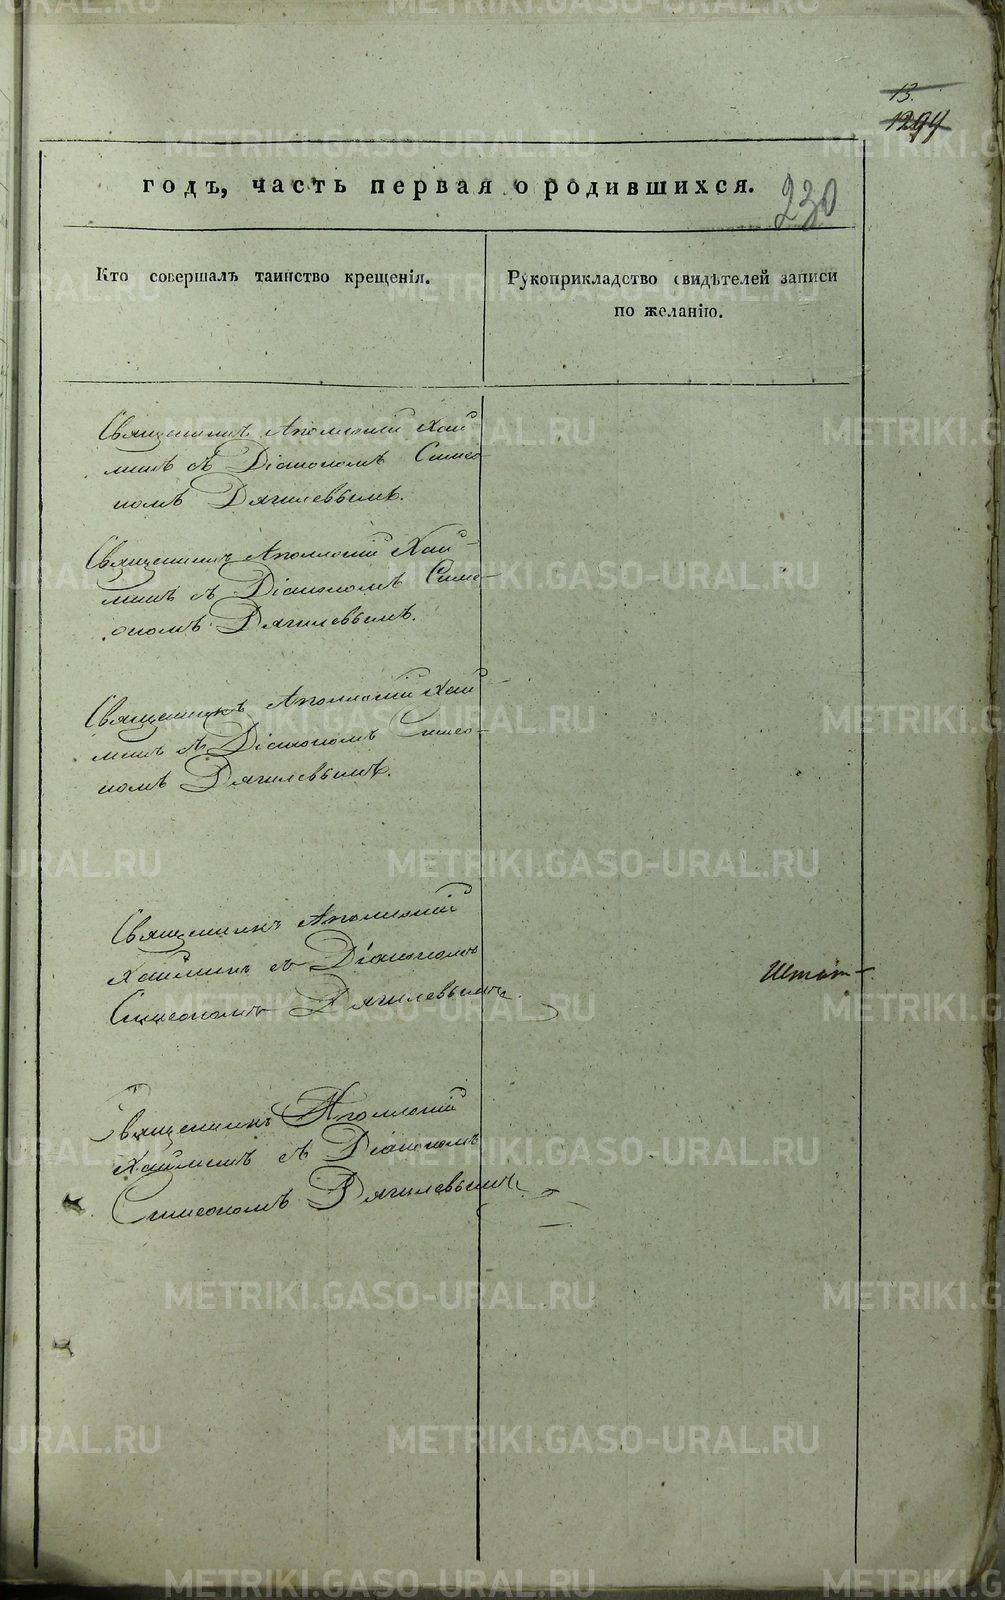 13.
1294
годъ, часть первая о родившихся.
230
Кто совершалъ таинство крещенія.
Рукоприкладство свидѣтелей записи
по желанію.
Священникъ Аполлоній Хай
минъ съ Діакономъ Симео
номъ Дягилевымъ.
Священникъ Аполлоній Хай-
минъ съ Діакономъ Симе-
ономъ Дягилевымъ.
Священникъ Аполлоній Хай-
минъ съ Діакономъ Симео-
номъ Дягилевымъ.
Священникъ Аполлоній
Хайминъ съ Діакономъ
Симеономъ Дягилевымъ.
Священникъ Аполлоній
Хайминъ съ Діакономъ
Симеономъ Дягилевымъ.
METRIKI.GASO-URAL.RU